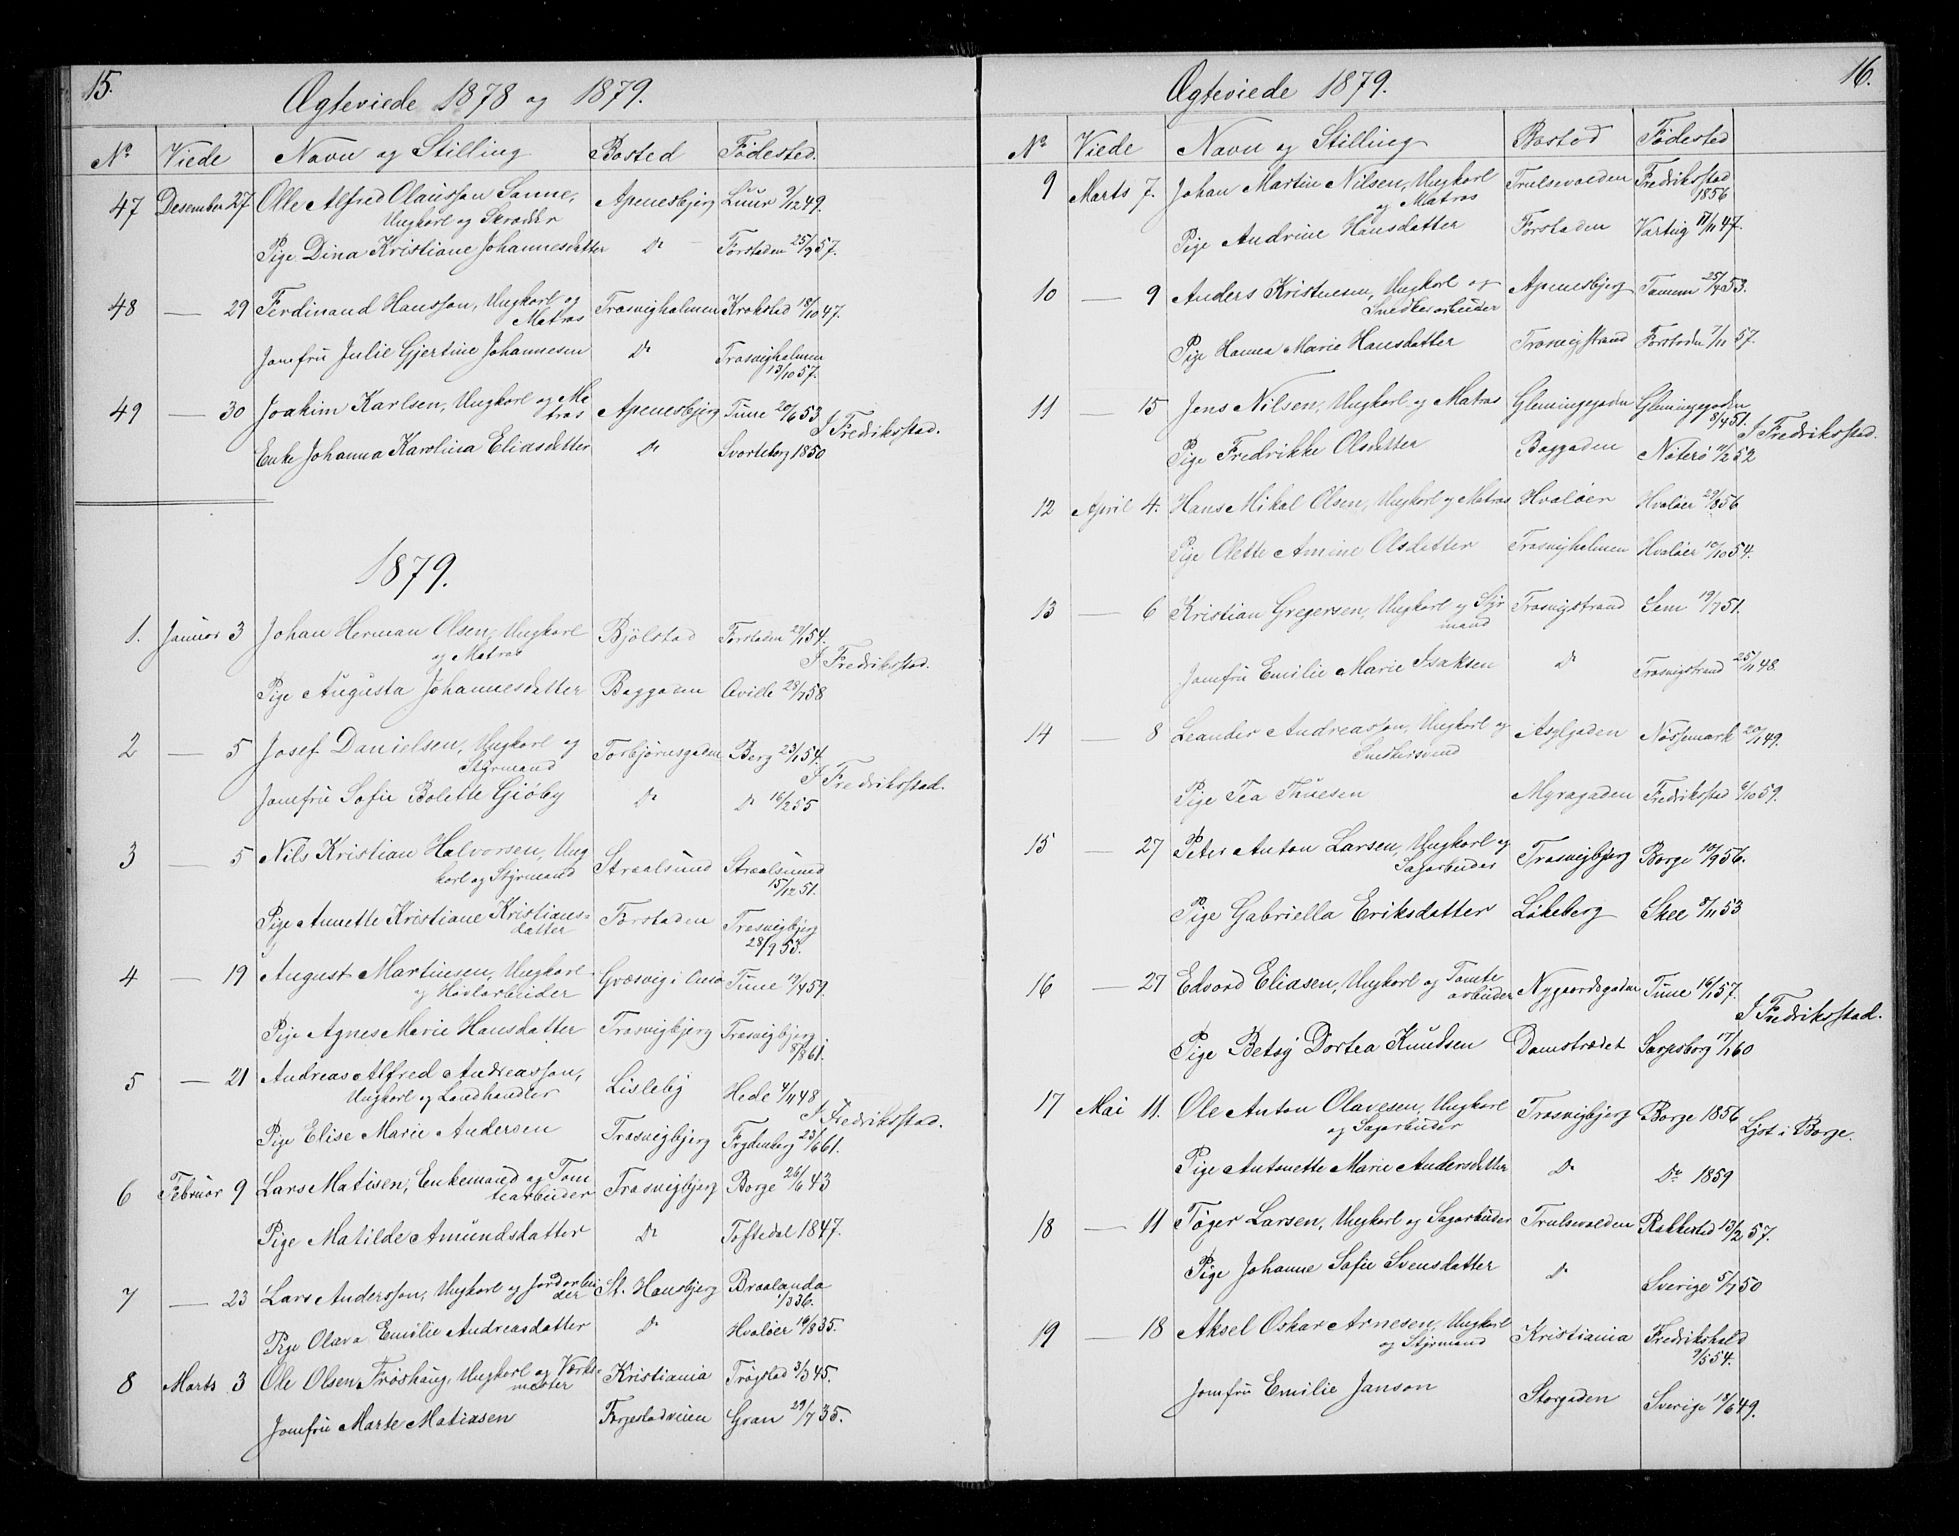 15.
Ægteviede 1878 og 1879.
No Viede Navn og Stilling Bosted Fødested.
47 Desember 27 Olle Alfred Olausson Sanne, Apenesbjerg Luur 2/12 49.
Ungkarl og Skræder
Pige Dina Kristiane Johannesdatter Do Forstaden 25/9 57.
48 — 29 Ferdinand Hansson, Ungkarl og Trosvigholmen Krokstad 18/10 47.
Matros
Jomfru Julie Gjertine Johannesen Do Trosvigholmen
13/10 57.
49 — 30 Joakim Karlsen, Ungkarl og Ma Apenesbjerg Tune 20/6 53
tros I Fredriksstad.
Enke Johanna Karolina Eliasdatter Do Svarteborg 1850
1879.
1. Januar 3 Johan Herman Olsen, Ungkarl Bjølstad Forstaden 27/1 54.
og Matros I Fredriksstad.
Pige Augusta Johannesdatter Baggaden Qvile 28/7 58
2 — 5 Josef Danielsen, Ungkarl og Torbjørnsgaden Berg 23/1 54.
Styrmand I Fredriksstad.
Jomfru Sofie Bolette Giöby Do Do 16/2 55
3 — 5 Nils Kristian Halvorsen, Ung Straalsund Straalsund
karl og Styrmand 15/12 51.
Pige Annette Kristiane Kristians- Forstaden Trosvigbjerg
datter 28/9 53.
4 — 19 August Martinsen, Ungkarl Græsvig i Onsø Tune 19/4 59.
og Høvlarbeider
Pige Agnes Marie Hansdatter Trosvigbjerg Trosvigbjerg
8/8 61.
5 — 21 Andreas Alfred Andreasson, Lisleby Hede 4/11 48
Ungkarl og Landhandler I Fredriksstad.
Pige Elise Marie Andersen Trosvigbjerg Frydenberg 23/6 61.
6 Februar 9 Lars Matisen, Enkemand og Tom Trosvigbjerg Borge 26/6 43
tearbeider
Pige Matilde Amundsdatter Do Töftedal 1847.
7 — 23 Lars Andersson, Ungkarl og Jordarbei St. Hansbjerg Braalanda
der 1/3 36.
Pige Olava Emilie Andreasdatter Do Hvaløer 16/8 35.
8 Marts 3 Ole Olsen Frøshaug, Ungkarl og Værk- Kristiania Trøgstad 3/3 45.
mester
Jomfru Marte Matiasen Færgestadveien Gran 29/7 35.
16.
Ægteviede 1879.
No Viede Navn og Stilling Bosted Fødested
9 Marts 7. Johan Martin Nilsen, Ungkarl Trulsevolden Fredriksstad
og Matros 1856
Pige Andrine Hansdatter Forstaden Varteig 17/11 47.
10 — 9 Anders Kristnesen, Ungkarl og Apenesbjerg Tanum 25/4 53.
Snedkerarbeider
Pige Hanna Marie Hansdatter Trosvigstrand Forstaden 7/11 57.
11 — 15 Jens Nilsen, Ungkarl og Matros Glemingegaden Glemingegaden
8/4 51. I Fredriksstad.
Pige Fredrikke Olsdatter Baggaden Nøterø 11/2 52
12 April 4. Hans Mikal Olsen, Ungkarl og Matros Hvaløer Hvaløer 29/8 56
Pige Olette Amine Olsdatter Trosvigholmen Hvaløer 10/10 54.
13 — 6 Kristian Gregersen, Ungkarl og Styr Trosvigstrand Sem 19/7 51.
mand
Jomfru Emilie Marie Isaksen Do Trosvigstrand 25/11 48.
14 — 8 Leander Andreasson, Ungkarl og Asylgaden Nössemark 20/1 49.
Snedkersvend
Pige Tea Thuesen Myragaden Fredriksstad 6/10 59.
15 — 27 Peter Anton Larsen, Ungkarl og Trosvigbjerg Borge 19/9 56.
Sagarbeider
Pige Gabriella Eriksdatter Løkeberg Skee 8/11 53
16 — 27 Edvard Eliasen, Ungkarl og Tomte Nygaardsgaden Tune 16/1 57.
arbeider I Fredriksstad.
Pige Betsy Dortea Knudsen Damstrædet Sarpsborg 17/1 60
17 Mai 11. Ole Anton Olavesen, Ungkarl Trosvigbjerg Borge 1856
og Sagarbeider Lyst i Borge.
Pige Antonette Marie Andersdatter Do Do 1859
18 — 11 Tøger Larsen, Ungkarl og Sagarbeider Trulsevolden Rakkestad 13/2 57.
Pige Johanne Sofie Svensdatter Do Sverige 5/7 50
19 — 18 Aksel Oskar Arnesen, Ungkarl Kristiania Fredrikshald
og Styrmand 2/5 54.
Jomfru Emilie Janson Storgaden Sverige 18/6 49.